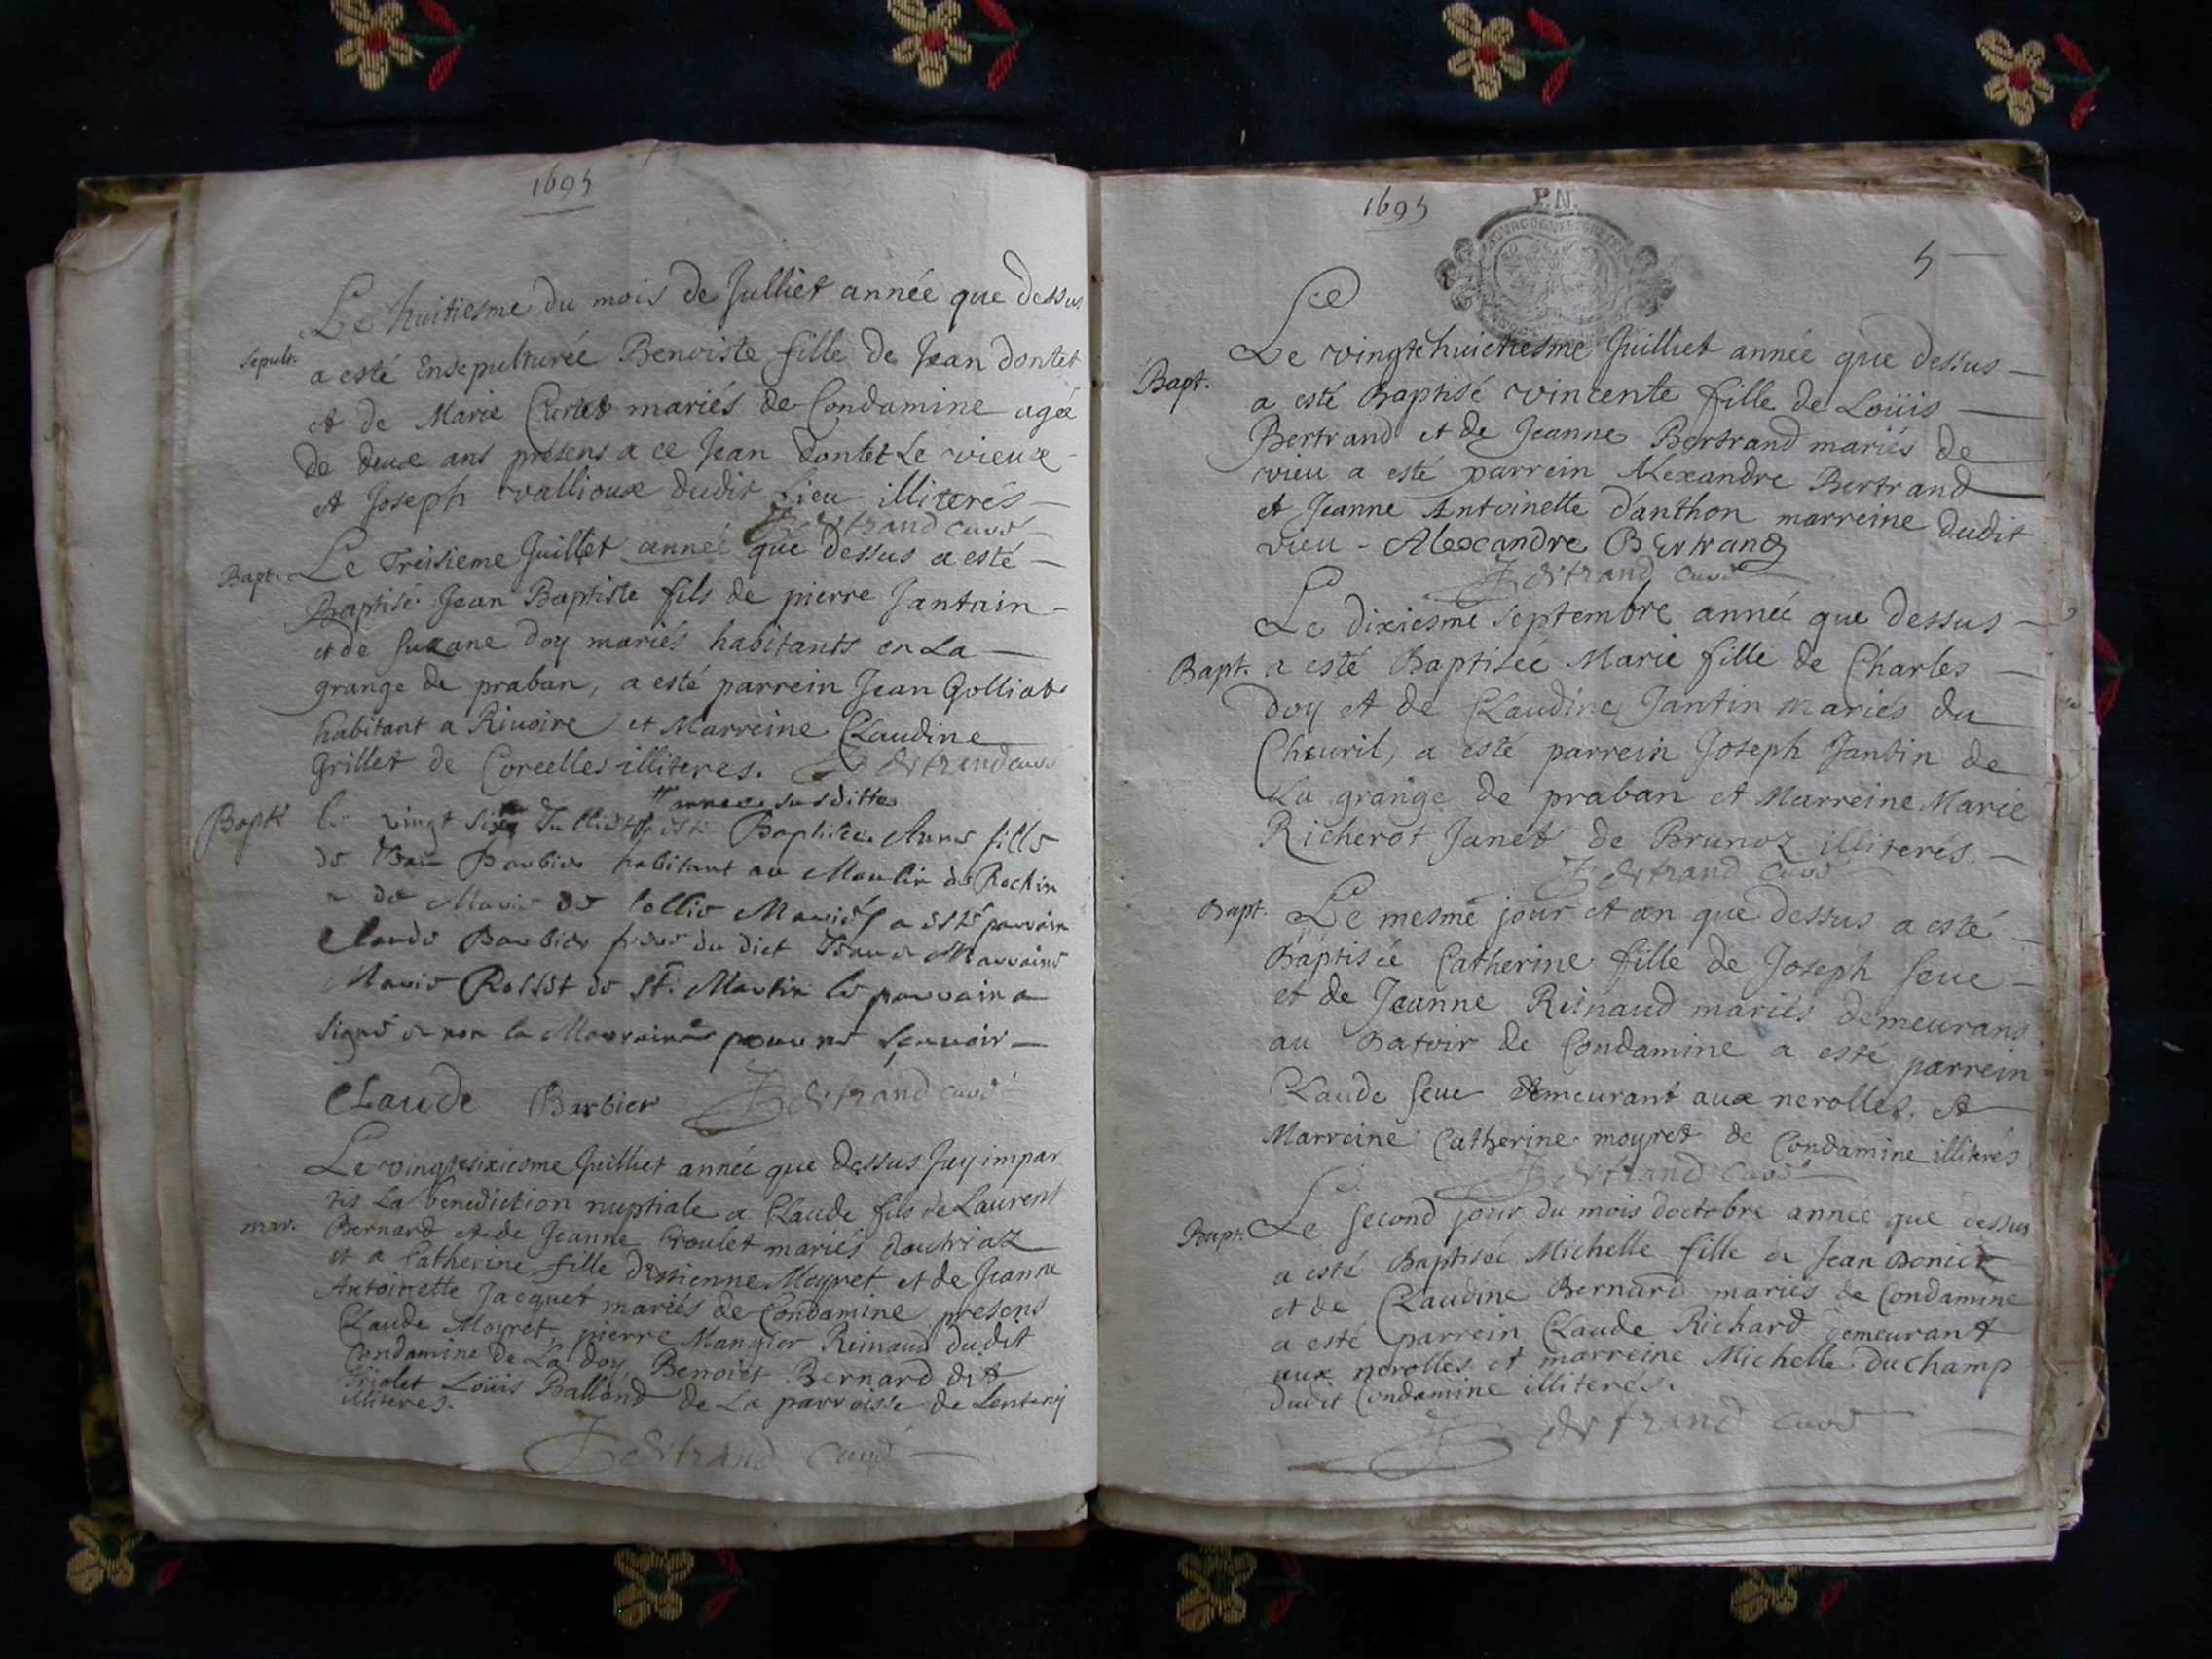 1695
Le huitiesme du mois de Julliet année que dessus
sepult.
a esté Ensepulturée Benoiste fille de Jean dontet
et de Marie Curtet mariés de Condamine agée
de deux ans présens a ce Jean dontet Le vieux
et Joseph vallioux dudit Lieu illiterés
Bertrand curé
Bapt. Le Treisieme Juillet année que dessus a esté
Baptisé Jean Baptiste fils de pierre Jantain
et de Suzane doy mariés habitants en La
grange de praban, a esté parrein Jean Golliat
habitant a Rivoire et Marreine Claudine
Grillet de Corcelles illiteres. Bertrand curé
l'année susditte
Bapt. le vingt six Julliet est Baptisée Anne fille
de Barbier habitant au Moulin de Rochin
de Marie de Mariés a esté parrain
Claude Barbier frere du dict Marraine
Marie Rosset de St. Martin le parrain a
signé & non la Marraine pour ne sçavoir
CLaude Barbier Bertrand curé
Le vingtesixiesme Juilliet année que dessus Jay impar
tis La benediction nuptiale a Claude fils de Laurent
mar. Bernard et de Jeanne Croulet mariés dautriaz
et a Catherine fille destienne Moyret et de Jeanne
Antoinette Jacquet mariés de Condamine presens
Claude Moyret, pierre Mangier Reinaud dudit
Condamine de La doy, Benoiet Bernard dit
Triolet Loüis Balland de La parroisse de Lentenay
illiteres.
Bertrand curé
1695
P.N.
5
Le vingtehuictiesme Juilliet année que dessus
Bapt.
a esté Baptisé vincente fille de Loüis
Bertrand et de Jeanne Bertrand mariés de
vieu a esté parrein Alexandre Bertrand
et Jeanne Antoinette d'anthon marreine dudit
vieu - Alexandre Bertrand
Bertrand curé
Le dixiesme septembre année que dessus
Bapt. a esté Baptisée Marie fille de Charles
doy et de Claudine Jantin mariés du
Cheuril, a esté parrein Joseph Jantin de
La grange de praban et Marreine Marie
Richerot Janet de Brunoz illiterés.
Bertrand curé
Bapt. Le mesme jour et an que dessus a esté
Baptisée Catherine fille de Joseph Seue
et de Jeanne Reinaud mariés demeurans
au Batoir de Condamine a esté parrein
Claude Seue demeurant aux nerolles. et
Marreine Catherine moyret de Condamine illiterés
Bertrand curé
Bapt. Le second jour du mois doctobre année que dessus
a esté Baptisée Michelle fille a Jean Boniet
et de Claudine Bernard mariés de Condamine
a esté parrein Claude Richard demeurant
aux nerolles et marreine Michelle Duchamp
dudit Condamine illiterés.
Bertrand curé